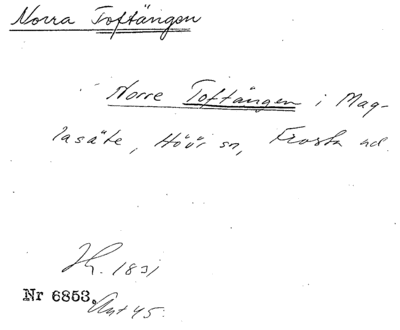 Norra Toftängen
Norre Toftängen i Mag-
lasäte, Höör sn, Frosta hd.
1831
Nr 6853. Ant 45.